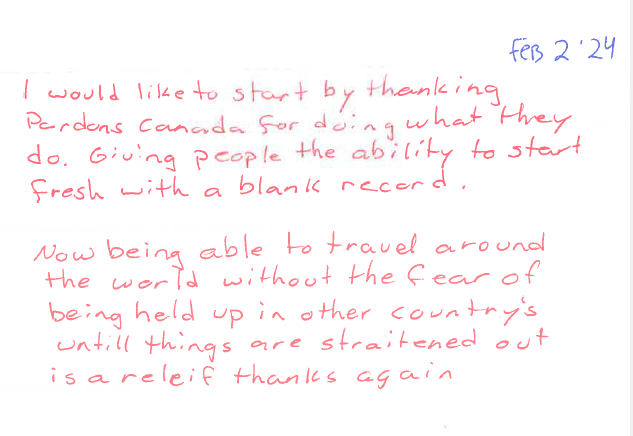 FEB 2 '24
I would like to start by thanking
Pardons Canada for doing what they
do. Giving people the ability to start
fresh with a blank record.
Now being able to travel around
the world without the fear of
being held up in other country's
untill things are straitened out
is a releif thanks again